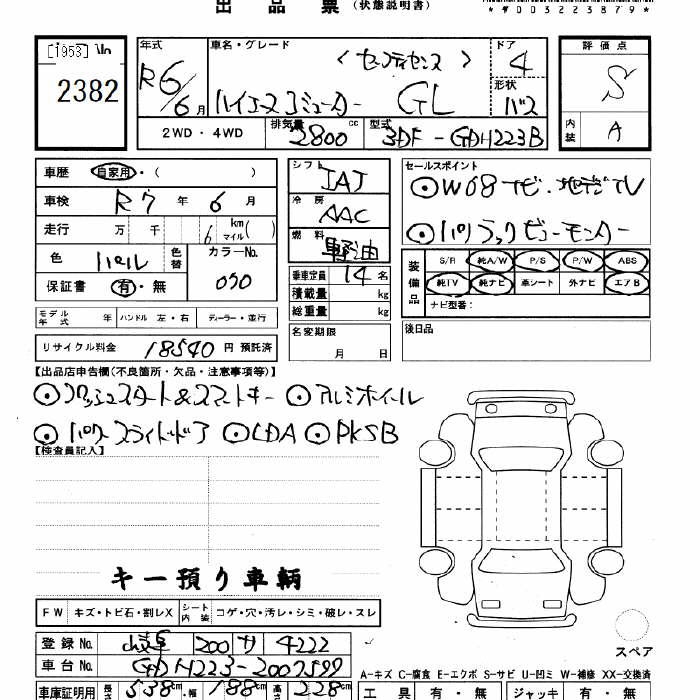 出品票 (状態説明書)
*90032238 79*
[1953]
2382
年式 R6/6月
車名・グレード <セーフティセンス>
ハイエースコミューター GL
ドア 4
形状 バス
2WD・4WD 排気量 2800 cc 型式 3DF-GDH223B
評価点 S
内装 A
車歴 自家用・( )
車検 R7年 6月
走行 万 千 6 km マイル( )
色 パール 色替 カラーNo. 050
保証書 有・無
シフト IAT
冷房 AAC
燃料 軽油
乗車定員 14名
積載量 kg
総重量 kg
名変期限 月 日
セールスポイント
⊙W08ナビ・地デジTV
⊙パノラミックビューモニター
装備品 S/R 純A/W P/S P/W ABS
純TV 純ナビ 革シート 外ナビ エアB
ナビ型番:
後日品
モデル年式 年 ハンドル 左・右 ディーラー・並行
リサイクル料金 18540 円 預託済
【出品店申告欄(不良箇所・欠品・注意事項等)】
⊙プッシュスタート&スマートキー ⊙アルミホイール
⊙パワースライドドア ⊙LDA ⊙PKSB
【検査員記入】
キー預り車輌
FW キズ・トビ石・割レX シート内装 コゲ・穴・汚レ・シミ・破レ・スレ
スペア
登録No. 200 サ 4222
車台No. GDH223-2007599
A=キズ C=腐食 E=エクボ S=サビ U=凹ミ W=補修 XX=交換済
車庫証明用 長さ 538cm 幅 188cm 高さ 228cm
工具 有・無 ジャッキ 有・無